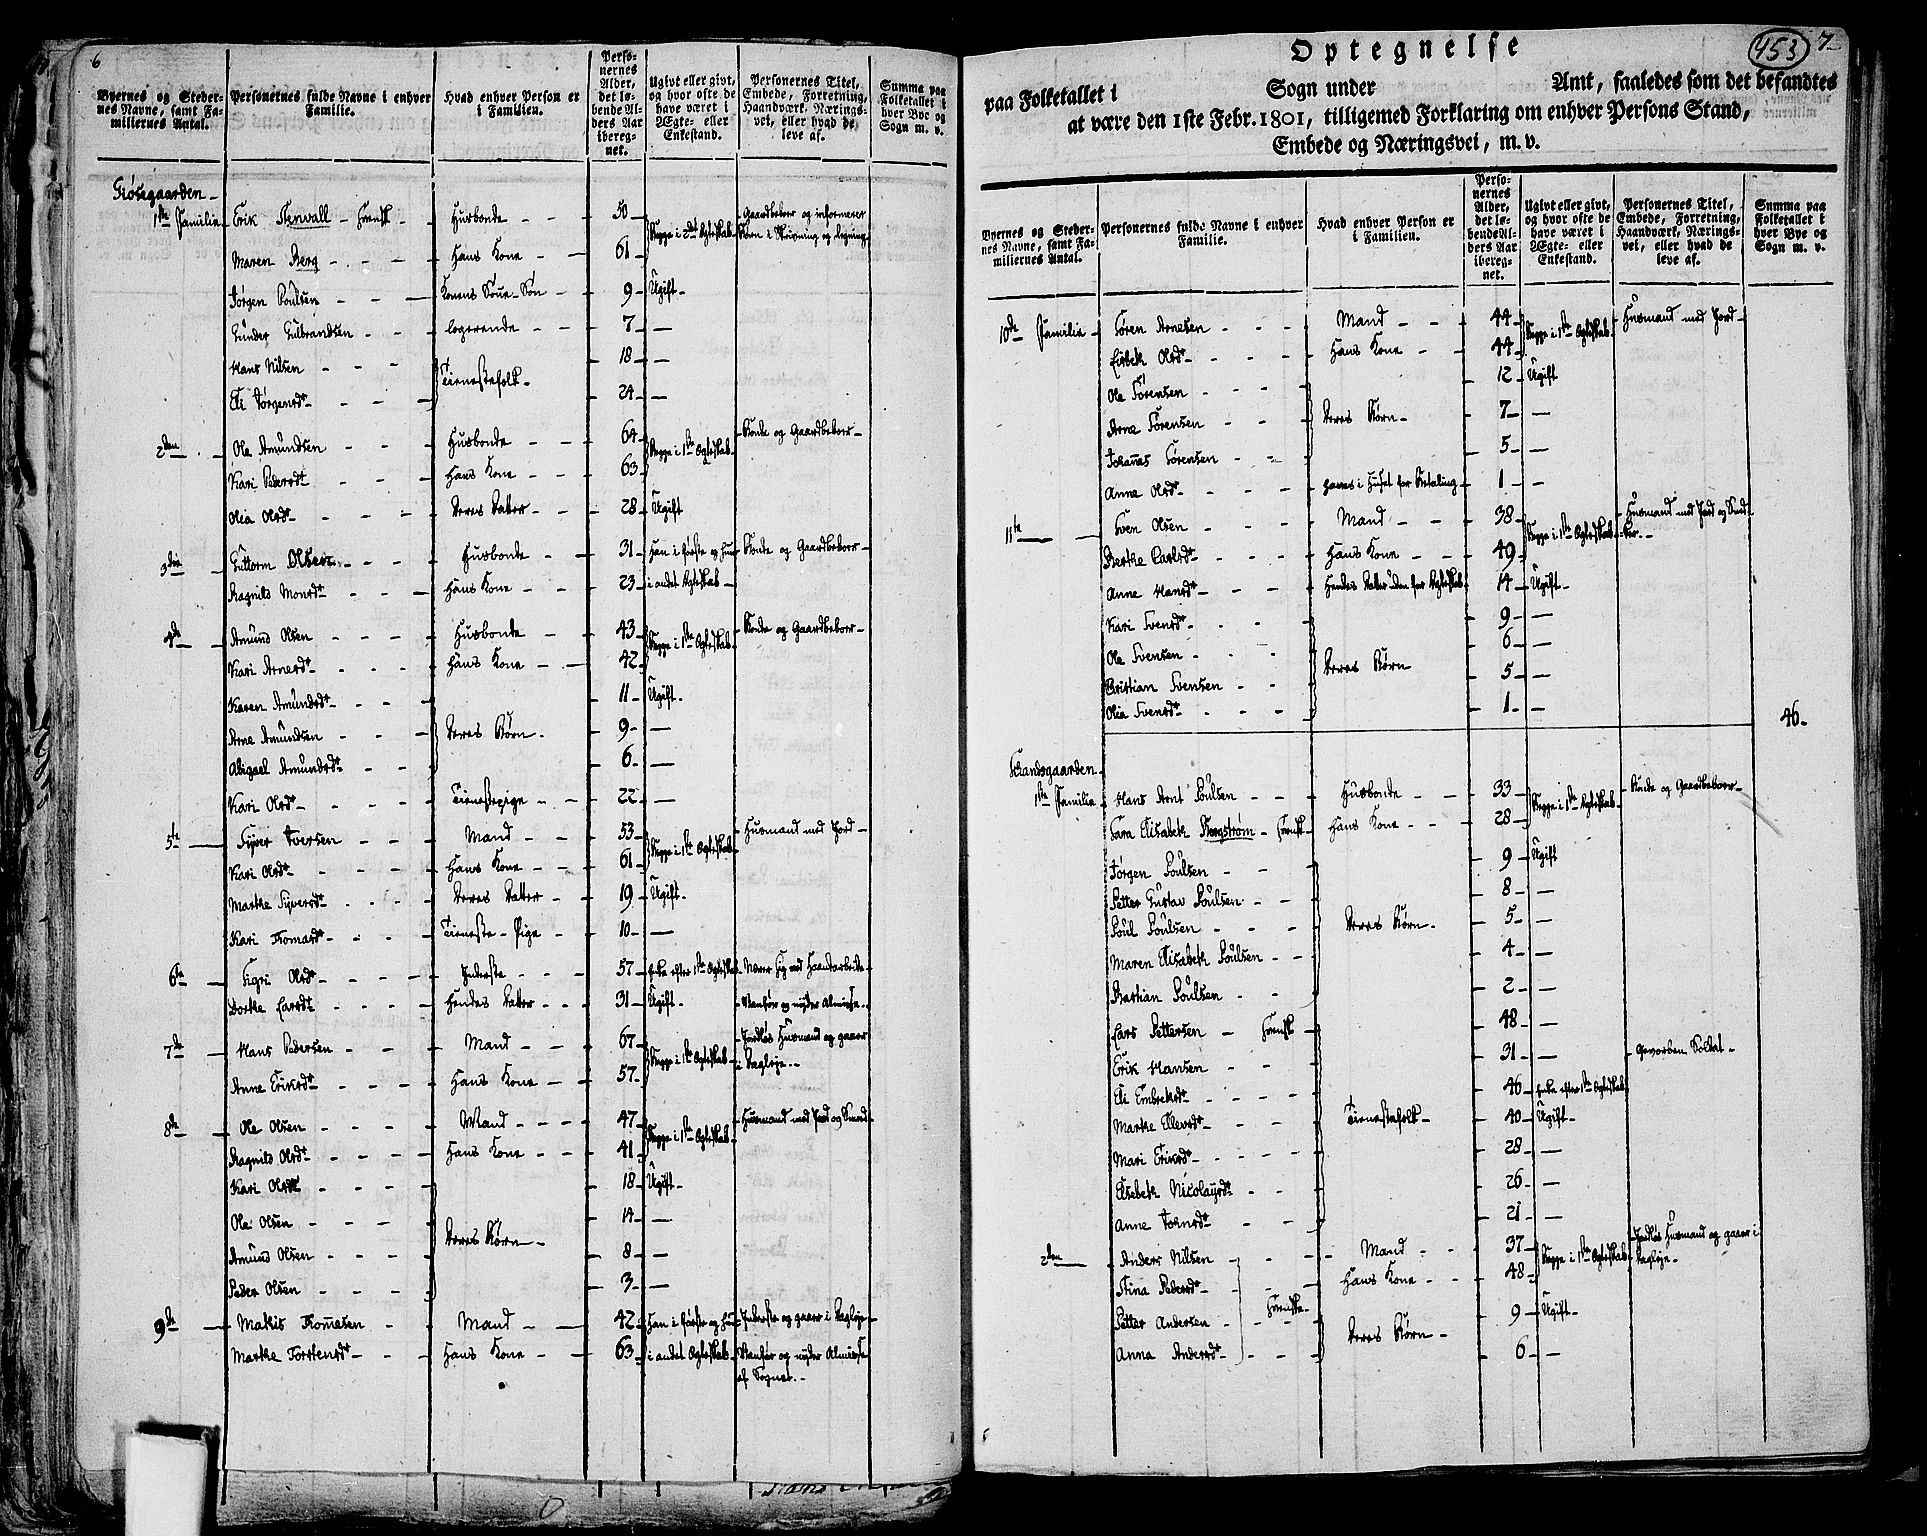 6
Byernes og Steder-
nes Navne, samt Fa-
miliernes Antal.
Personernes fulde Navne i enhver
Familie.
Hvad enhver Person er
i Familien.
Perso-
nernes
Alder,
det lø-
bende Al-
ders Aar
iberegn-
net.
Ugivt eller givt,
og hvor ofte de
have været i
Ægte- eller
Enkestand.
Personernes Titel,
Embede, Forretning,
Haandværk, Nærings-
vei, eller hvad de
leve af.
Summa paa
Folketallet i
hver Bye og
Sogn m. v.
1ste Familie Erik - Svensk - Husbonde - 50 - Gaardbeboer og informerer
Begge i 2det Ægteskab Børn i Skrivning og Regning
Maren Berg - Hans Kone - 61
Jørgen Poulsen - Konens Søne-Søn - 9 Ugift
Gunder Gulbrandsen - logerende - 7 —
Hans Nilsen - 18 —
Tieneste folk
Eli Jørgensdt - 24 —
2den Ole Amundsen - Husbonde - 64 Begge i 1ste Ægteskab Bonde og Gaardbeboer
Kari Pedersdt - Hans Kone - 63
Olia Olsdt - Deres Datter - 28 Ugift
3die Guttorm Olsen - Husbonde - 31 Han i første og hun Bonde og Gaardbeboer
Ragnild Monsdt - Hans Kone - 23 i andet Ægteskab
4de Amund Olsen - Husbonde - 43 Begge i 1ste Ægteskab Bonde og Gaardbeboer
Kari Arnesdt - Hans Kone - 42
Karen Amundsdt - 11 Ugift
Arne Amundsen - Deres Børn - 9 —
Abigael Amundsdt - 6 —
Kari Olsdt - Tienestepige - 22 —
5te Syver Iversen - Mand - 53 Begge i 1ste Ægteskab Huusmand med Jord
Kari Olsdt - Hans Kone - 61
Marthe Syversdt - Deres Datter - 19 Ugift
Kari Tomasdt - Tieneste-Pige - 10 —
6te Sigri Olsdt - Inderste - 57 Enke efter 1ste Ægteskab Nærer sig med Haandarbeide
Dorthe Larsdt - Hendes Datter - 31 Ugift Vanfør og nyder Almisse
7de Hans Pedersen - Mand - 67 Begge i 1ste Ægteskab Jordløs Huusmand og gaaer
i Dagleje
Anne Eriksdt - Hans Kone - 57
8de Ole Olsen - Mand - 47 Begge i 1ste Ægteskab Huusmand med Jord og Smed
Ragnild Olsdt - Hans Kone - 41
Kari Olsdt - 18 Ugift
Ole Olsen - 14 —
Deres Børn
Amund Olsen - 8 —
Peder Olsen - 3 —
9de Mathis Tomesen - Mand - 42 Han i første og hun Inderste og gaaer i Dagleje
Marthe Torstensdt - Hans Kone - 63 i andet Ægteskab Vanfør og nyder Almisse
af Sognet
453 7
Optegnelse
paa Folketallet i Sogn under Amt, saaledes som det befandtes
at være den 1ste Febr. 1801, tilligemed Forklaring om enhver Persons Stand,
Embede og Næringsvei, m. v.
Byernes og Steder-
nes Navne, samt Fa-
miliernes Antal.
Personernes fulde Navne i enhver
Familie.
Hvad enhver Person er
i Familien.
Perso-
nernes
Alder,
det lø-
bende Al-
ders Aar
iberegn-
net.
Ugivt eller givt,
og hvor ofte de
have været i
Ægte- eller
Enkestand.
Personernes Titel,
Embede, Forretning,
Haandværk, Nærings-
vei, eller hvad de
leve af.
Summa paa
Folketallet i
hver Bye og
Sogn m. v.
10de Familie Søren Arnesen - Mand - 44 Begge i 1ste Ægteskab Huusmand med Jord
Lisbeth Olsdt - Hans Kone - 44
Ole Sørensen - 12 Ugift
Arne Sørensen - Deres Børn - 7 —
Johannes Sørensen - 5 —
Anne Olsdt - haves i Huset for Betaling - 1 —
11te Sven Olsen - Mand - 38 Begge i 1ste Ægteskab Huusmand med Jord og Smed
Berthe Carlsdt - Hans Kone - 49
Anne Hansdt - Hendes Datter uden for Ægteskab 14 Ugift
Kari Svensdt - 9 —
Ole Svensen - 6 —
Deres Børn
Christian Svensen - 5 —
Olia Svensdt - 1 —
46
Strandsgaarden
1ste Familie Hans Arnt Poulsen - Husbonde - 33 Begge i 1ste Ægteskab Bonde og Gaardbeboer
Sara Elisabeth Bergstrøm - Svensk - Hans Kone - 28
Jørgen Poulsen - 9 Ugift
Petter Gustav Poulsen - 8 —
Poul Poulsen - Deres Børn - 5 —
Maren Elisabeth Poulsen - 4 —
Bastian Poulsen - 2 —
Lars Pettersen - Svensk - 48 —
Erik Hansen - 31 — Gevorben Soldat
Eli Embretsdt - 46 Enke efter 1ste Ægteskab
Marthe Ellevsdt - Tienestefolk - 40 Ugift
Mari Eriksdt - 28 —
Elsebeth Nicolaysdt - 26 —
Anne Johnsdt - 21 —
2den Anders Nilsen - Mand - 37 Begge i 1ste Ægteskab Jordløs Huusmand og gaaer i
Dagleje
Stina Pedersdt - Hans Kone - 48
Svenske
Petter Andersen - 9 Ugift
Deres Børn
Anna Andersdt - 6 —